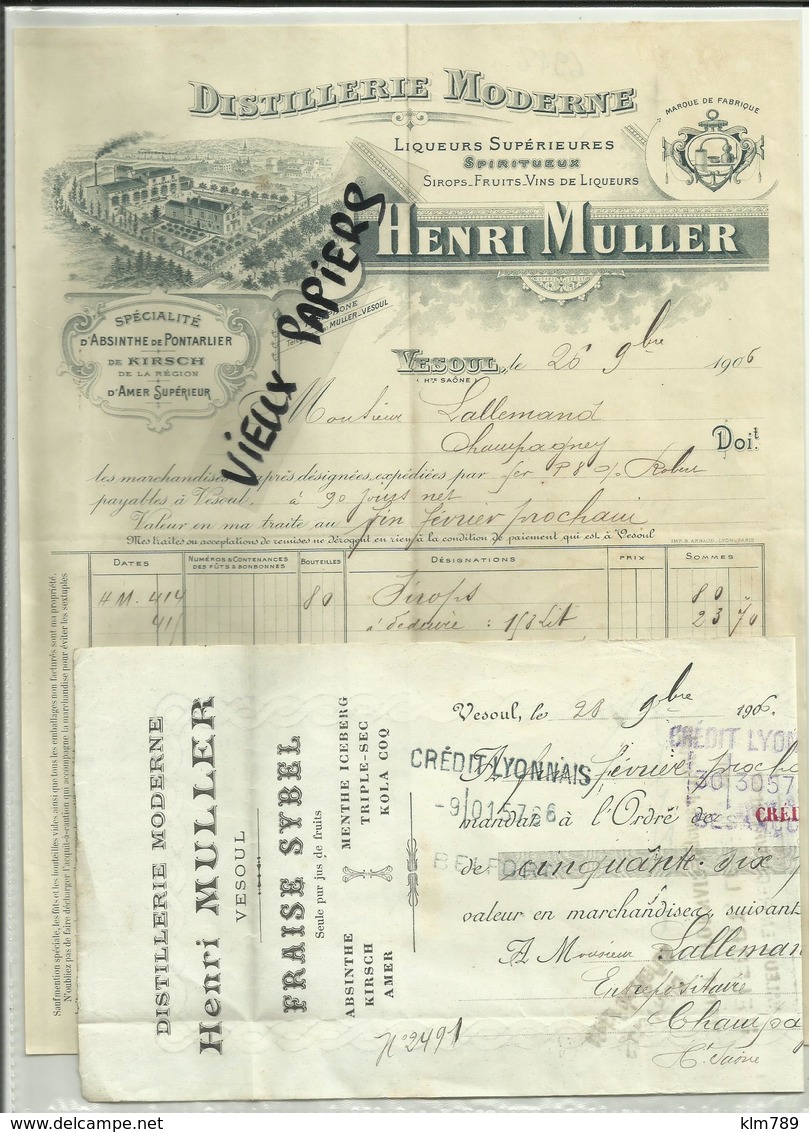 DISTILLERIE MODERNE
MARQUE DE FABRIQUE
LIQUEURS SUPÉRIEURES
SPIRITUEUX
SIROPS_FRUITS_VINS DE LIQUEURS
HENRI MULLER
MULLER_VESOUL
SPÉCIALITÉ
D'ABSINTHE DE PONTARLIER
DE KIRSCH
DE LA RÉGION
D'AMER SUPÉRIEUR
VIEUX PAPIERS
VESOUL, le 26 9bre 1906
(HTE SAÔNE)
Monsieur Lallemand
Champagney
Doit
les marchandises après désignées, expédiées par fer P 8 Robert
payables à Vesoul, à 90 jours net
Valeur en ma traite au fin février prochain
Mes traites ou acceptations de remises ne dérogent en rien à la condition de paiement qui est à Vesoul
IMP. B. ARNAUD, LYON_PARIS
DATES NUMÉROS & CONTENANCES DES FÛTS & BONBONNES BOUTEILLES DÉSIGNATIONS PRIX SOMMES
414 80 Sirops 80
à déduire : 158 Lit 23 70
Sauf mention spéciale, les fûts et les bouteilles vides ainsi que tous les emballages non facturés sont ma propriété.
N'oubliez pas de faire décharger l'acquit-à-caution qui accompagne la marchandise pour éviter les sextuples
DISTILLERIE MODERNE
Henri MULLER
VESOUL
FRAISE SYBEL
Seule pur jus de fruits
ABSINTHE MENTHE ICEBERG
KIRSCH TRIPLE-SEC
AMER KOLA COQ
N° 2491
Vesoul, le 28 9bre 1906.
CRÉDIT LYONNAIS
-9 01 57 66
BELFORT
CRÉDIT LYON
30 3057
CRÉD
A fin février procha
mandat à l'Ordre de
de cinquante-six
valeur en marchandises, suivant
A Monsieur Lalleman
Entrepositaire
Champa
Hte Saône
klm789